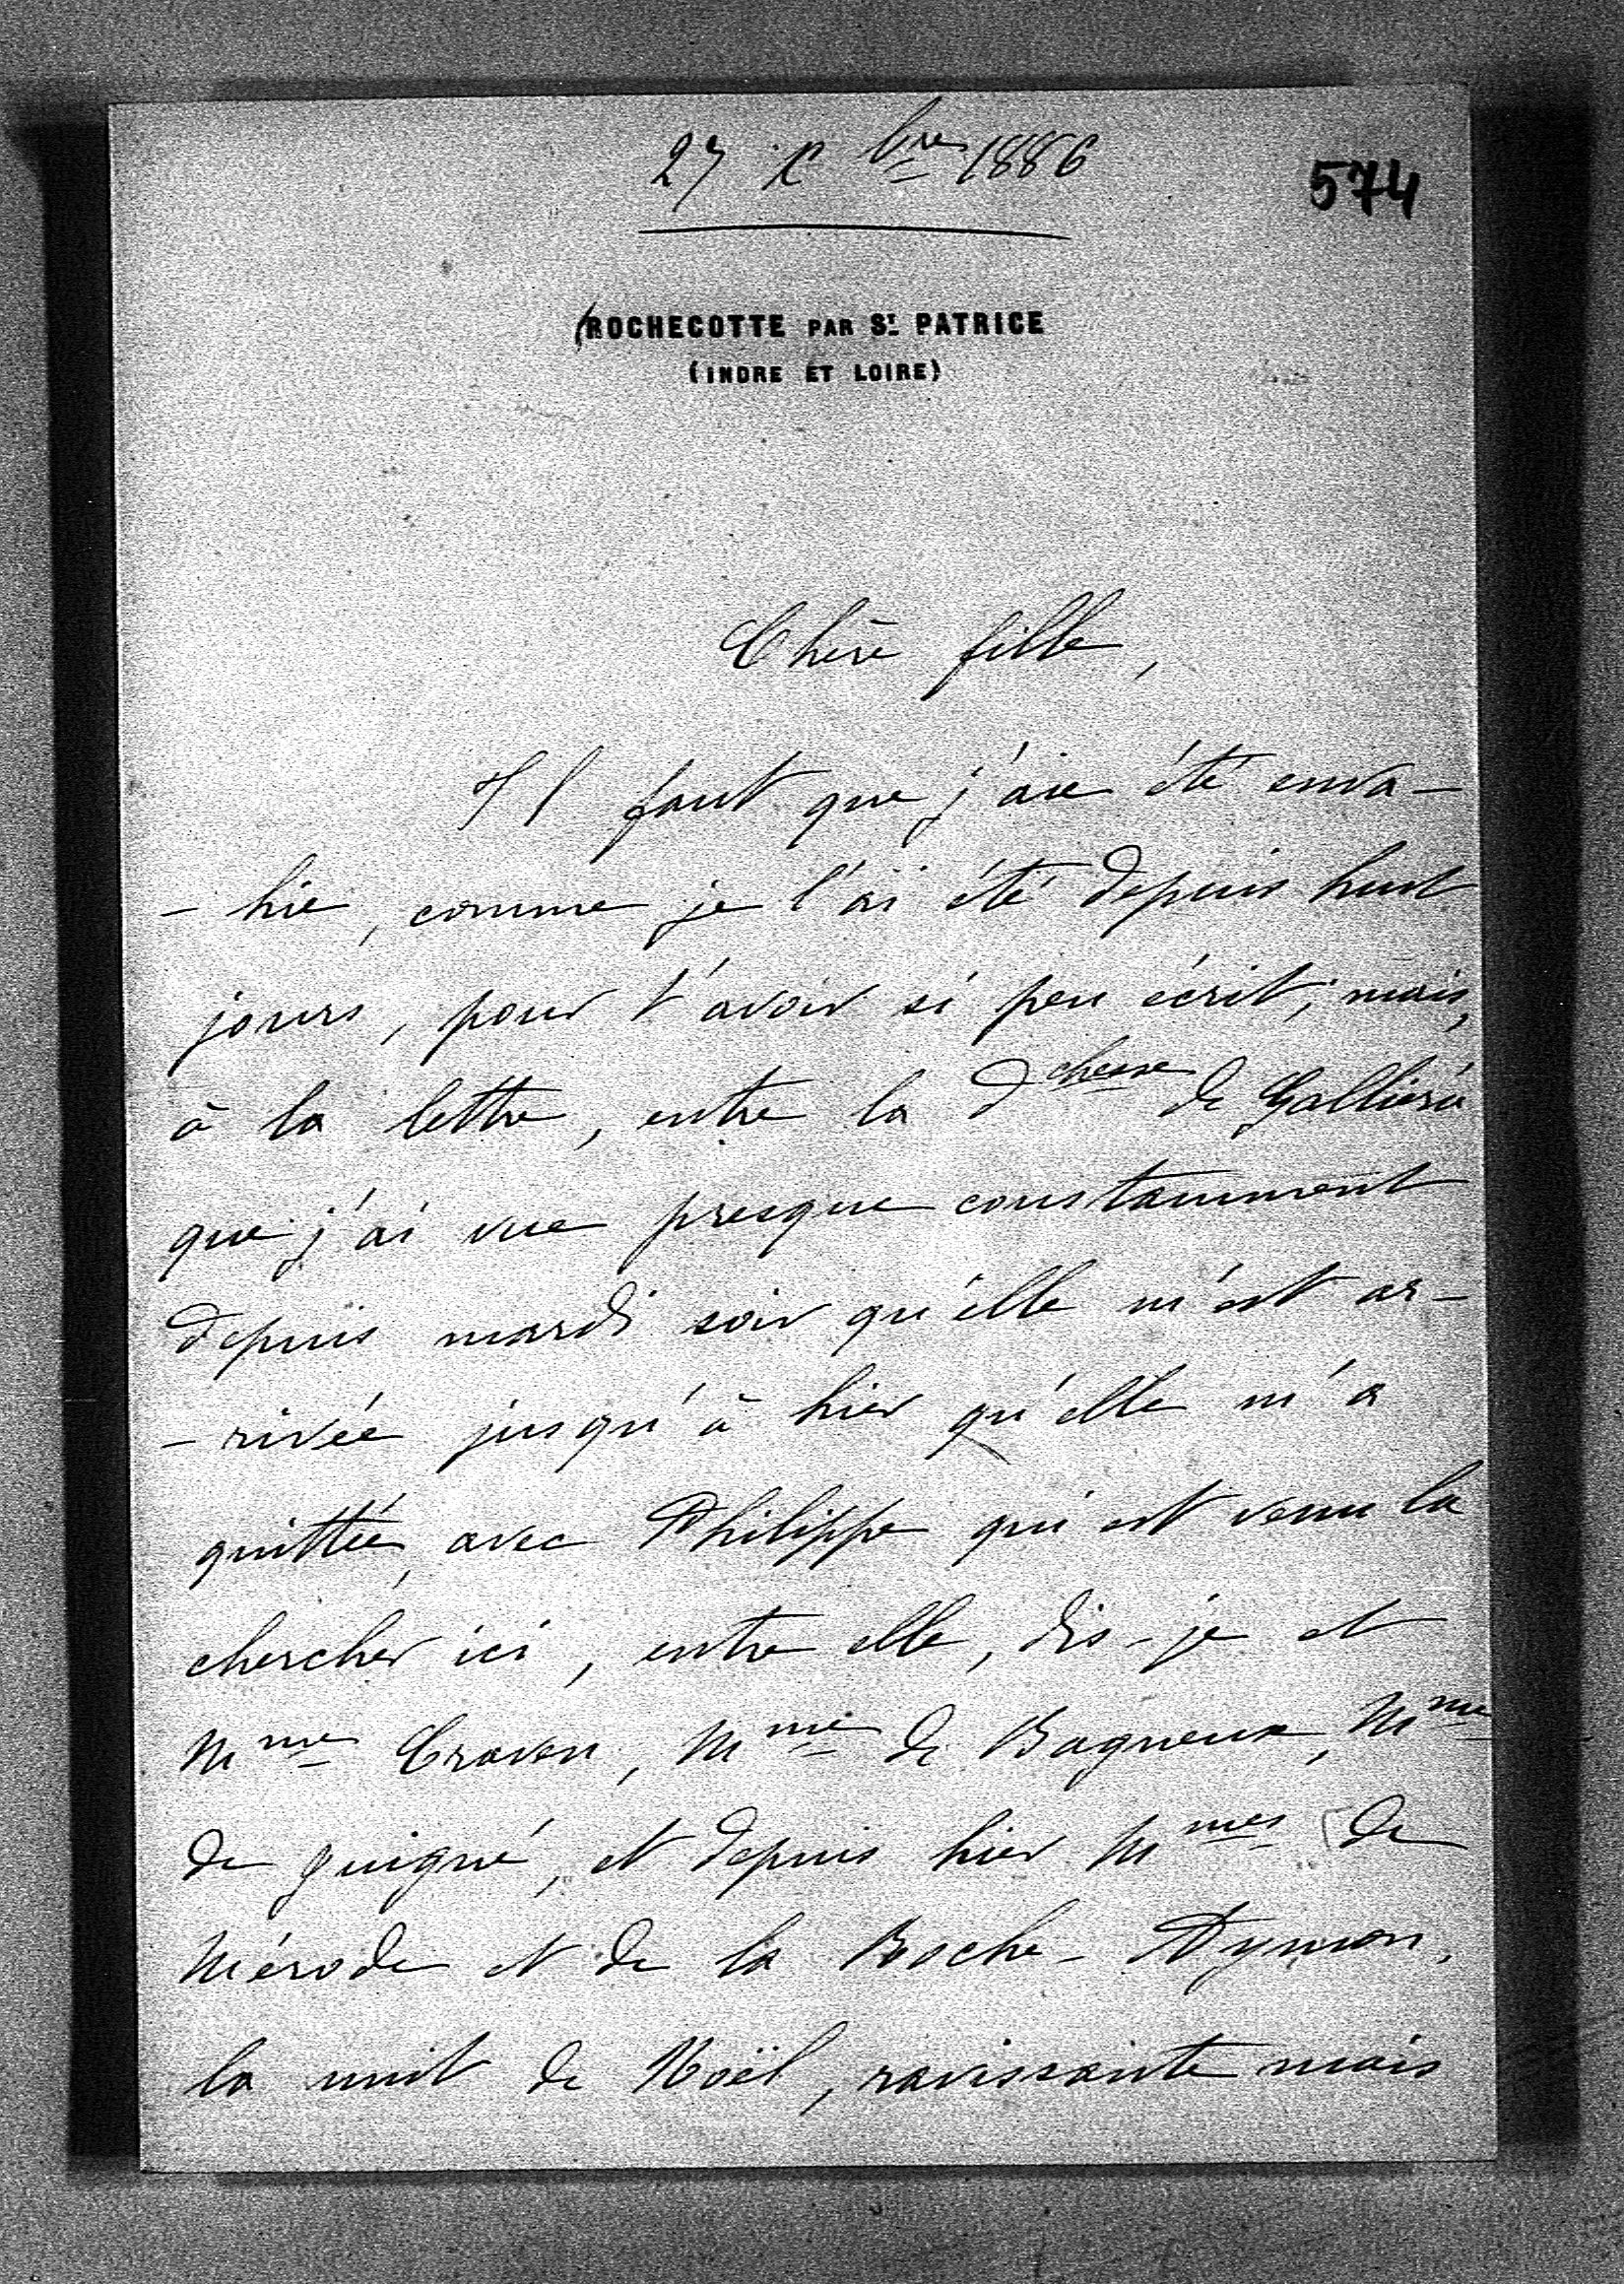 27 Xbre 1886
574
ROCHECOTTE PAR ST. PATRICE
(INDRE ET LOIRE)
Chère fille,
Il faut que j'aie été enva-
- hie, comme je l'ai été depuis huit
jours, pour t'avoir si peu écrit; mais,
à la lettre, entre la Dchesse de Galliera
que j'ai vue presque constamment
depuis mardi soir qu'elle m'est ar-
- rivée jusqu'à hier qu'elle m'a
quittée, avec Philippe qui est venu la
chercher ici, entre elle, dis-je et
Mme Craven, Mme de Bagneux, Mme
de Guigné, et depuis hier Mmes de
Mérode et de la Roche-Aymon,
la nuit de Noël, ravissante mais